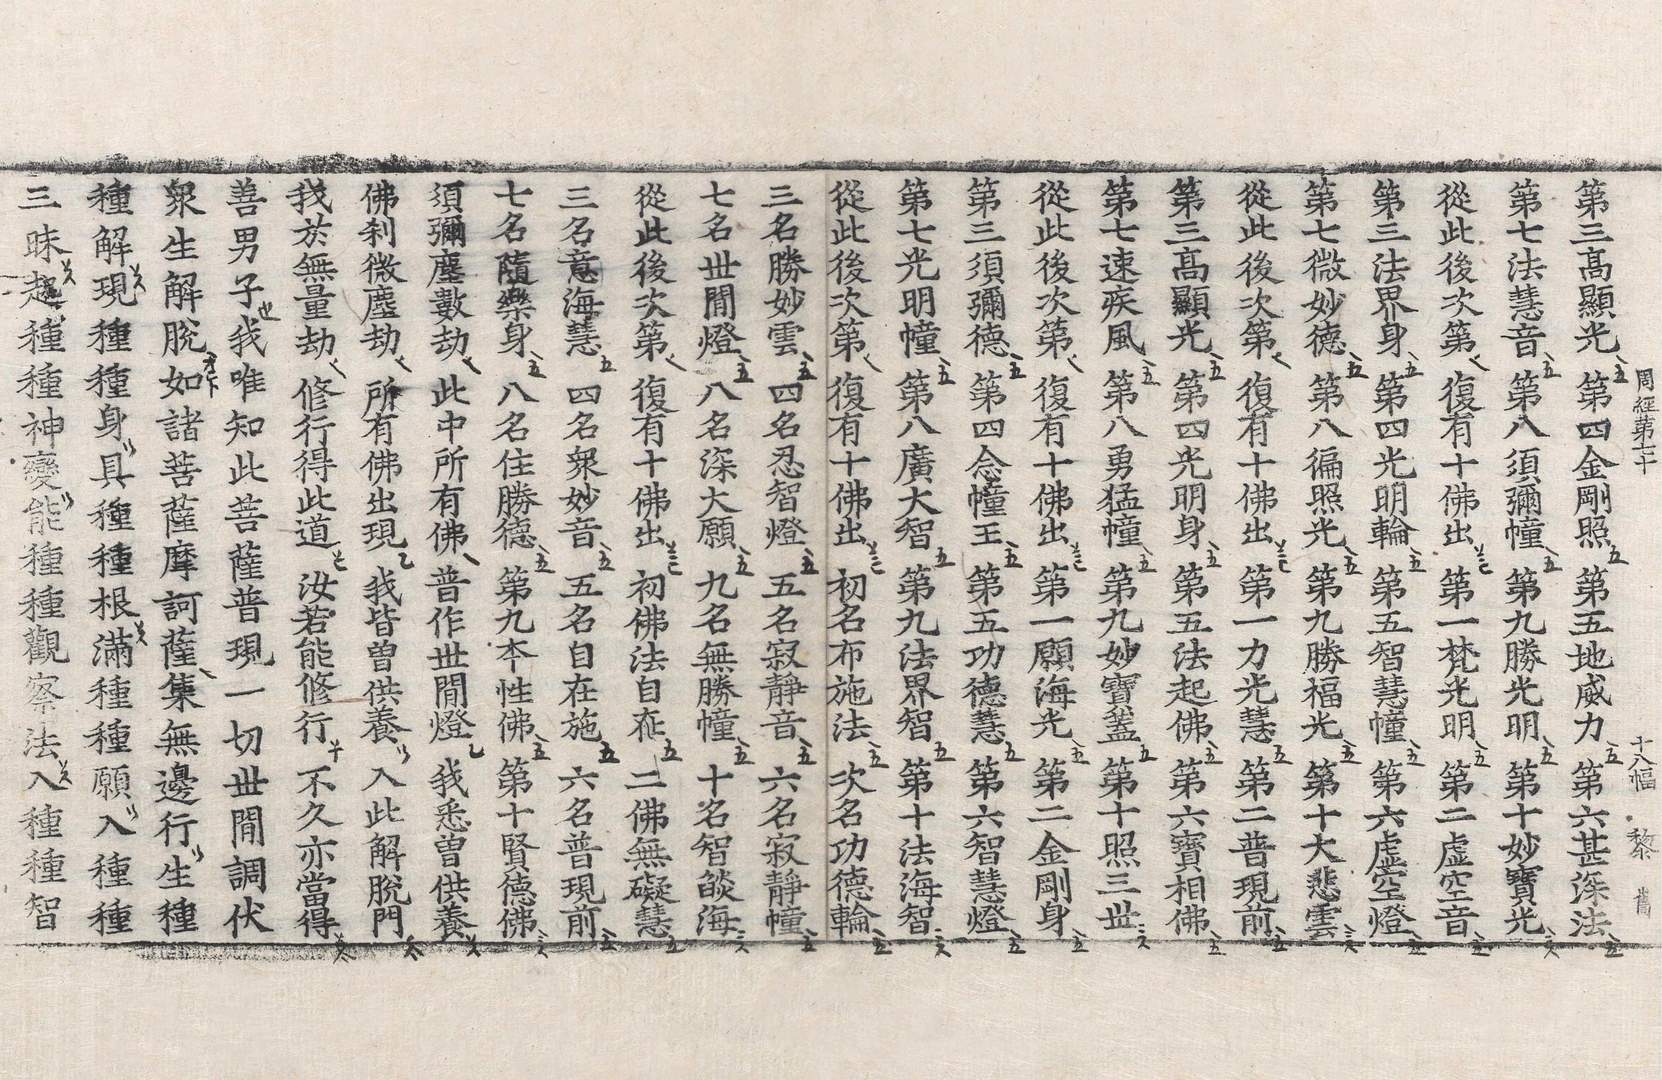 周經第七十 十八幅 黎
第三髙顯光 第四金剛照 第五地威力 第六甚深法
第七法慧音 第八須彌幢 第九勝光明 第十妙寶光
從此後次第 復有十佛出 第一梵光明 第二虛空音
第三法界身 第四光明輪 第五智慧幢 第六虛空燈
第七微妙德 第八徧照光 第九勝福光 第十大悲雲
從此後次第 復有十佛出 第一力光慧 第二普現前
第三髙顯光 第四光明身 第五法起佛 第六寶相佛
第七速疾風 第八勇猛幢 第九妙寶蓋 第十照三世
從此後次第 復有十佛出 第一願海光 第二金剛身
第三須彌德 第四念幢王 第五功德慧 第六智慧燈
第七光明幢 第八廣大智 第九法界智 第十法海智
從此後次第 復有十佛出 初名布施法 次名功德輪
三名勝妙雲 四名忍智燈 五名寂靜音 六名寂靜幢
七名世間燈 八名深大願 九名無勝幢 十名智燄海
從此後次第 復有十佛出 初佛法自在 二佛無礙慧
三名意海慧 四名衆妙音 五名自在施 六名普現前
七名隨樂身 八名住勝德 第九本性佛 第十賢德佛
須彌塵數劫 此中所有佛 普作世間燈 我悉曽供養
佛刹微塵劫 所有佛出現 我皆曽供養 入此解脫門
我於無量劫 修行得此道 汝若能修行 不久亦當得
善男子我唯知此菩薩普現一切世間調伏
衆生解脫如諸菩薩摩訶薩集無邊行生種
種解現種種身具種種根滿種種願入種種
三昧起種種神變能種種觀察法入種種智